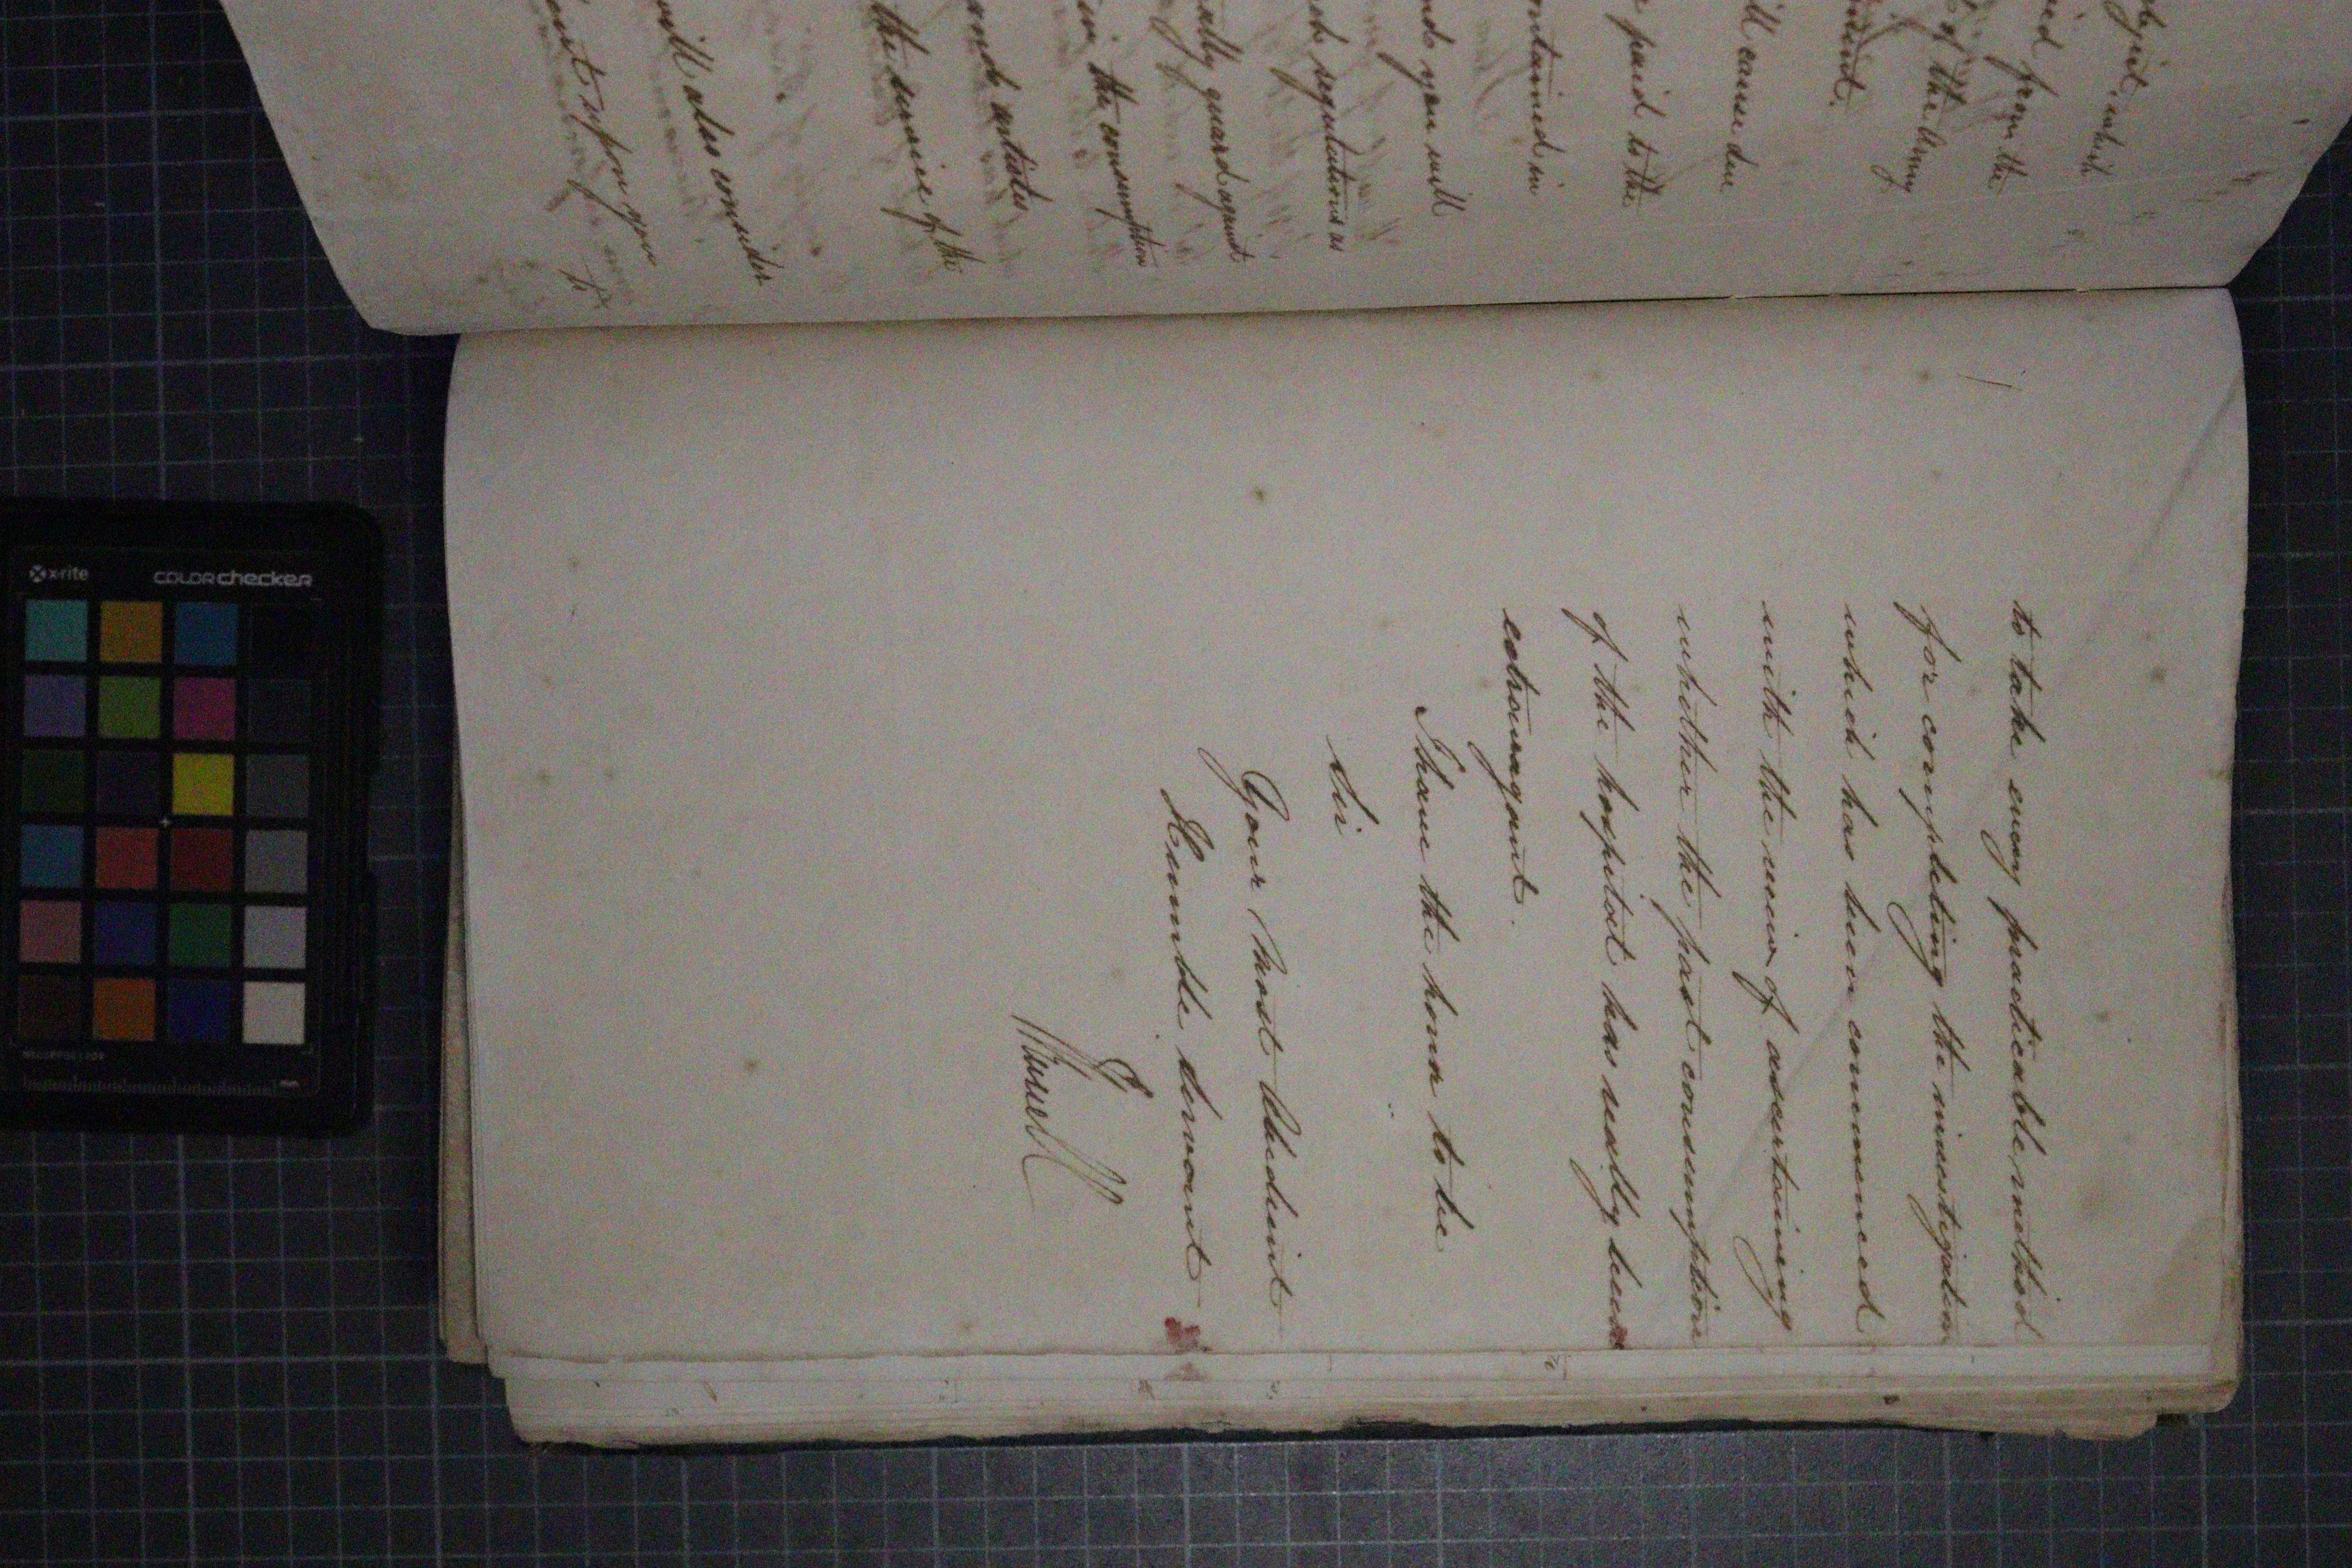 bject which
ied from the
of the Army
ment.
ll cause due
e paid to the
ontained in
nds you will
ch regulations as
ually guard against
in the consumption
and articles
the service of the
will also consider
ent upon you
to
to take every practicable method
for completing the investigation
which has been commenced
with the view of ascertaining
whether the past consumption
of the hospital has really been
extravagant.
I have the honor to be
Sir
Your most Obedient
Humble Servant
x-rite
colorchecker